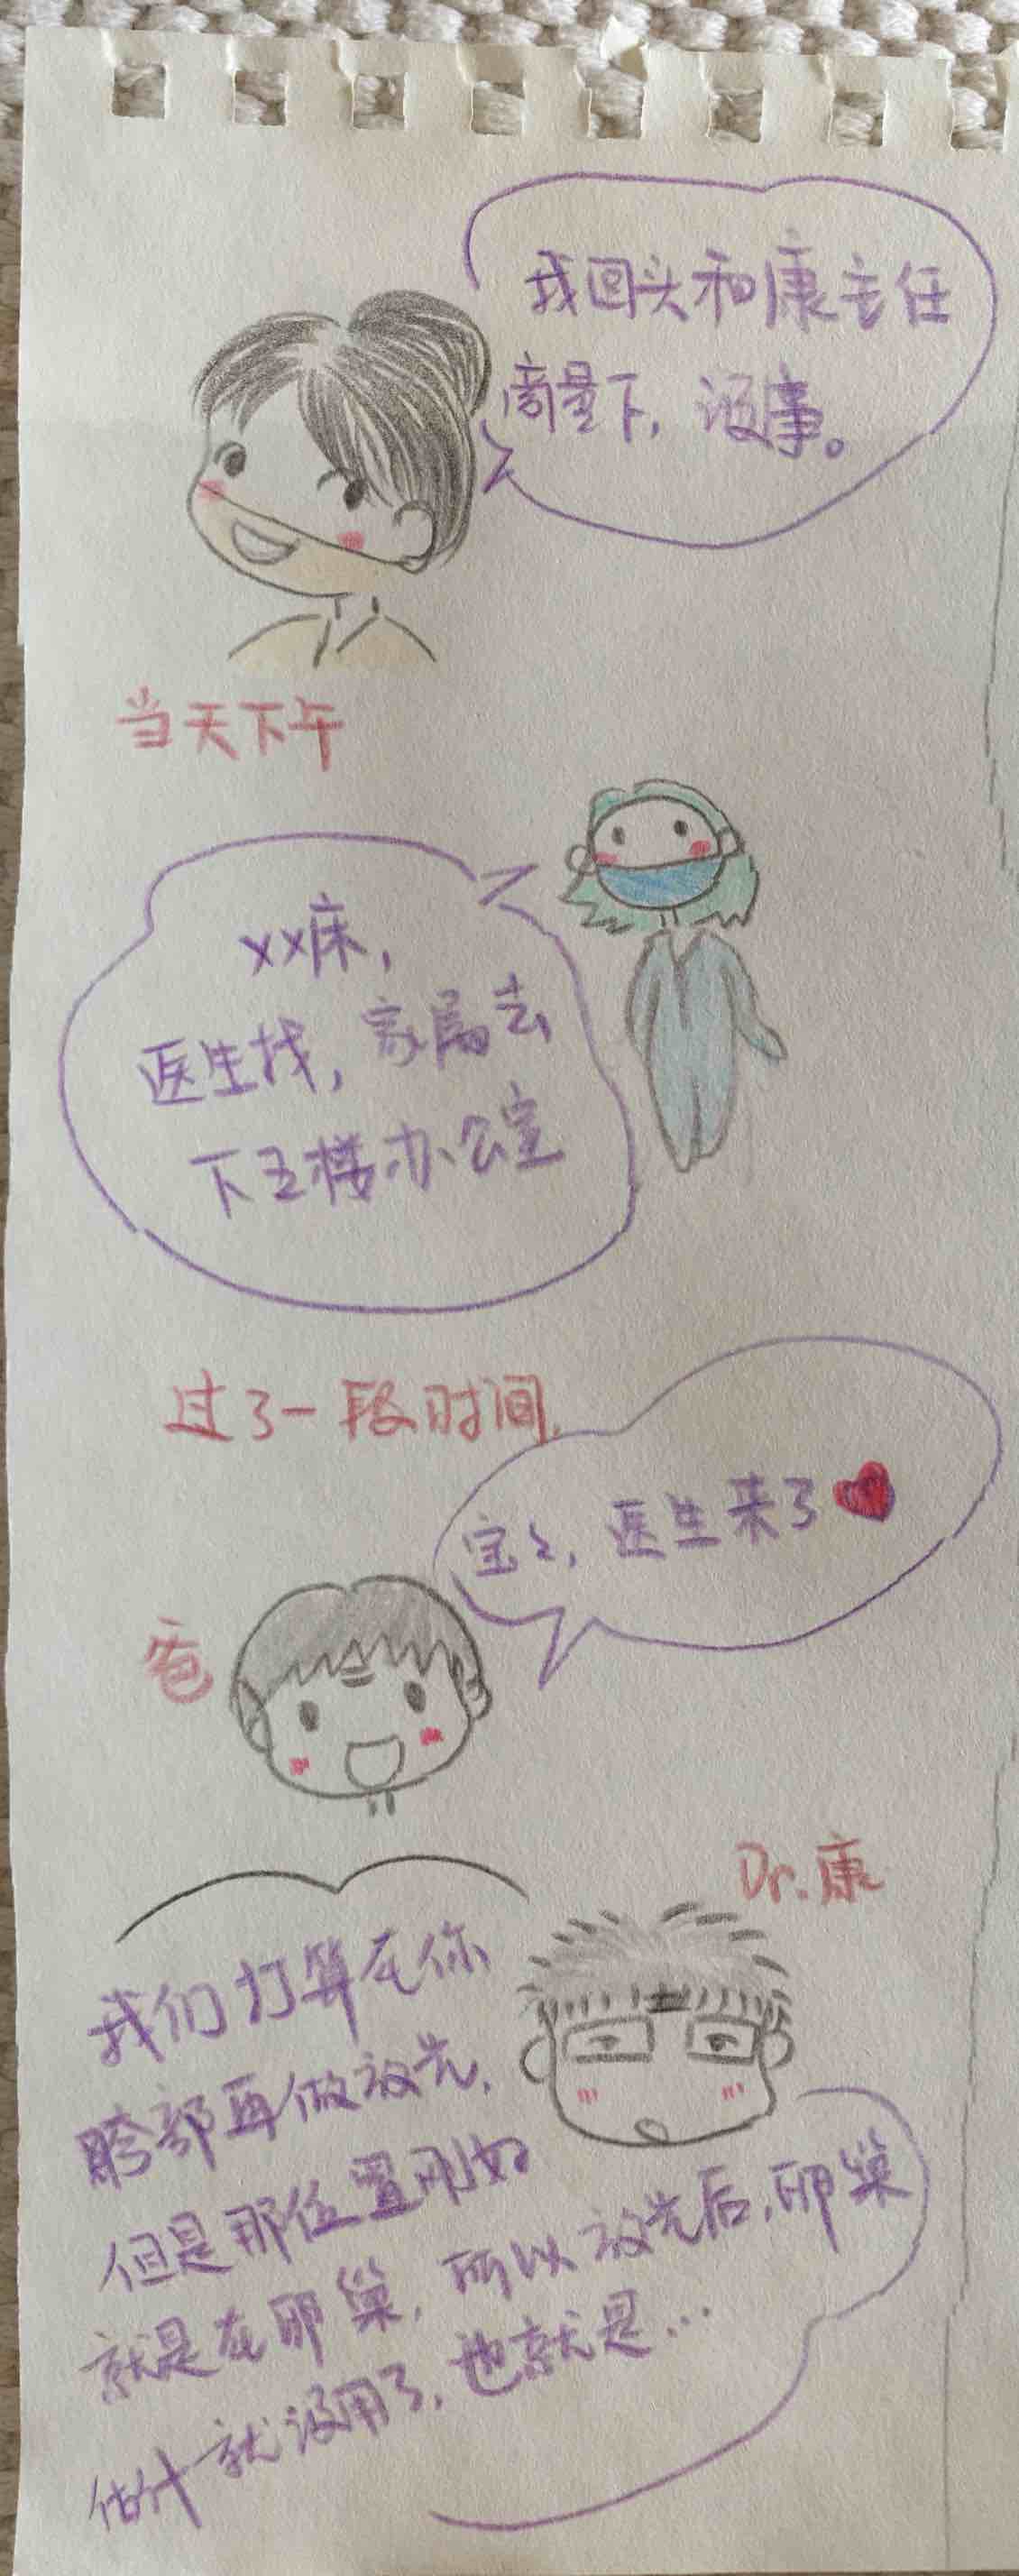 我回头和康主任
商量下，没事。
当天下午
xx床，
医生找，家属去
下五楼办公室
过了一段时间.
宝々，医生来了
爸
Dr.康
我们打算在你
胯部再做放光，
但是那位置刚好
就是在卵巢，所以放光后，卵巢
估计就没用了，也就是…